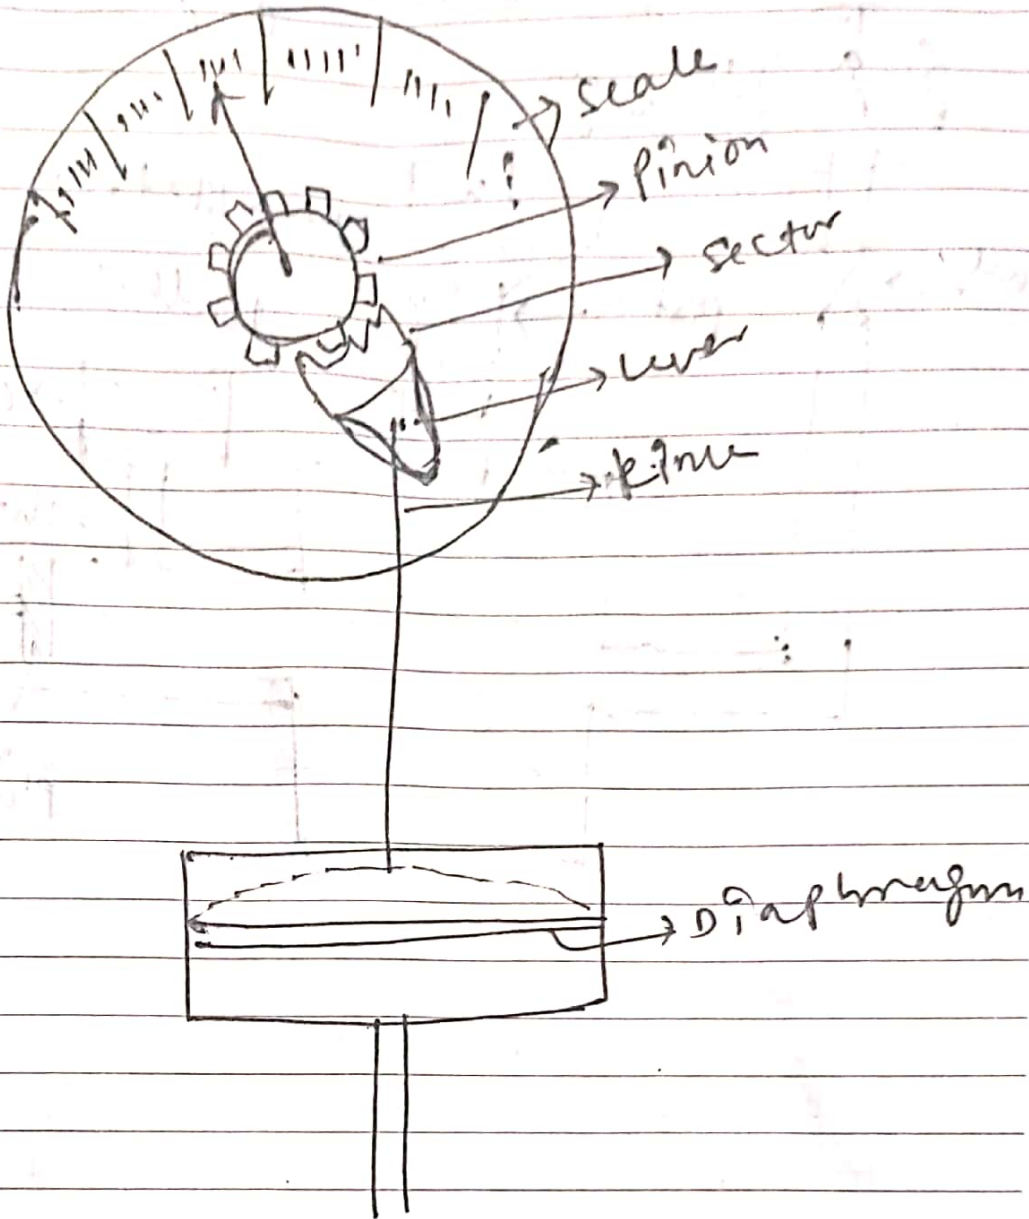 Scale
Pinion
Sector
Lever
Diaphragm